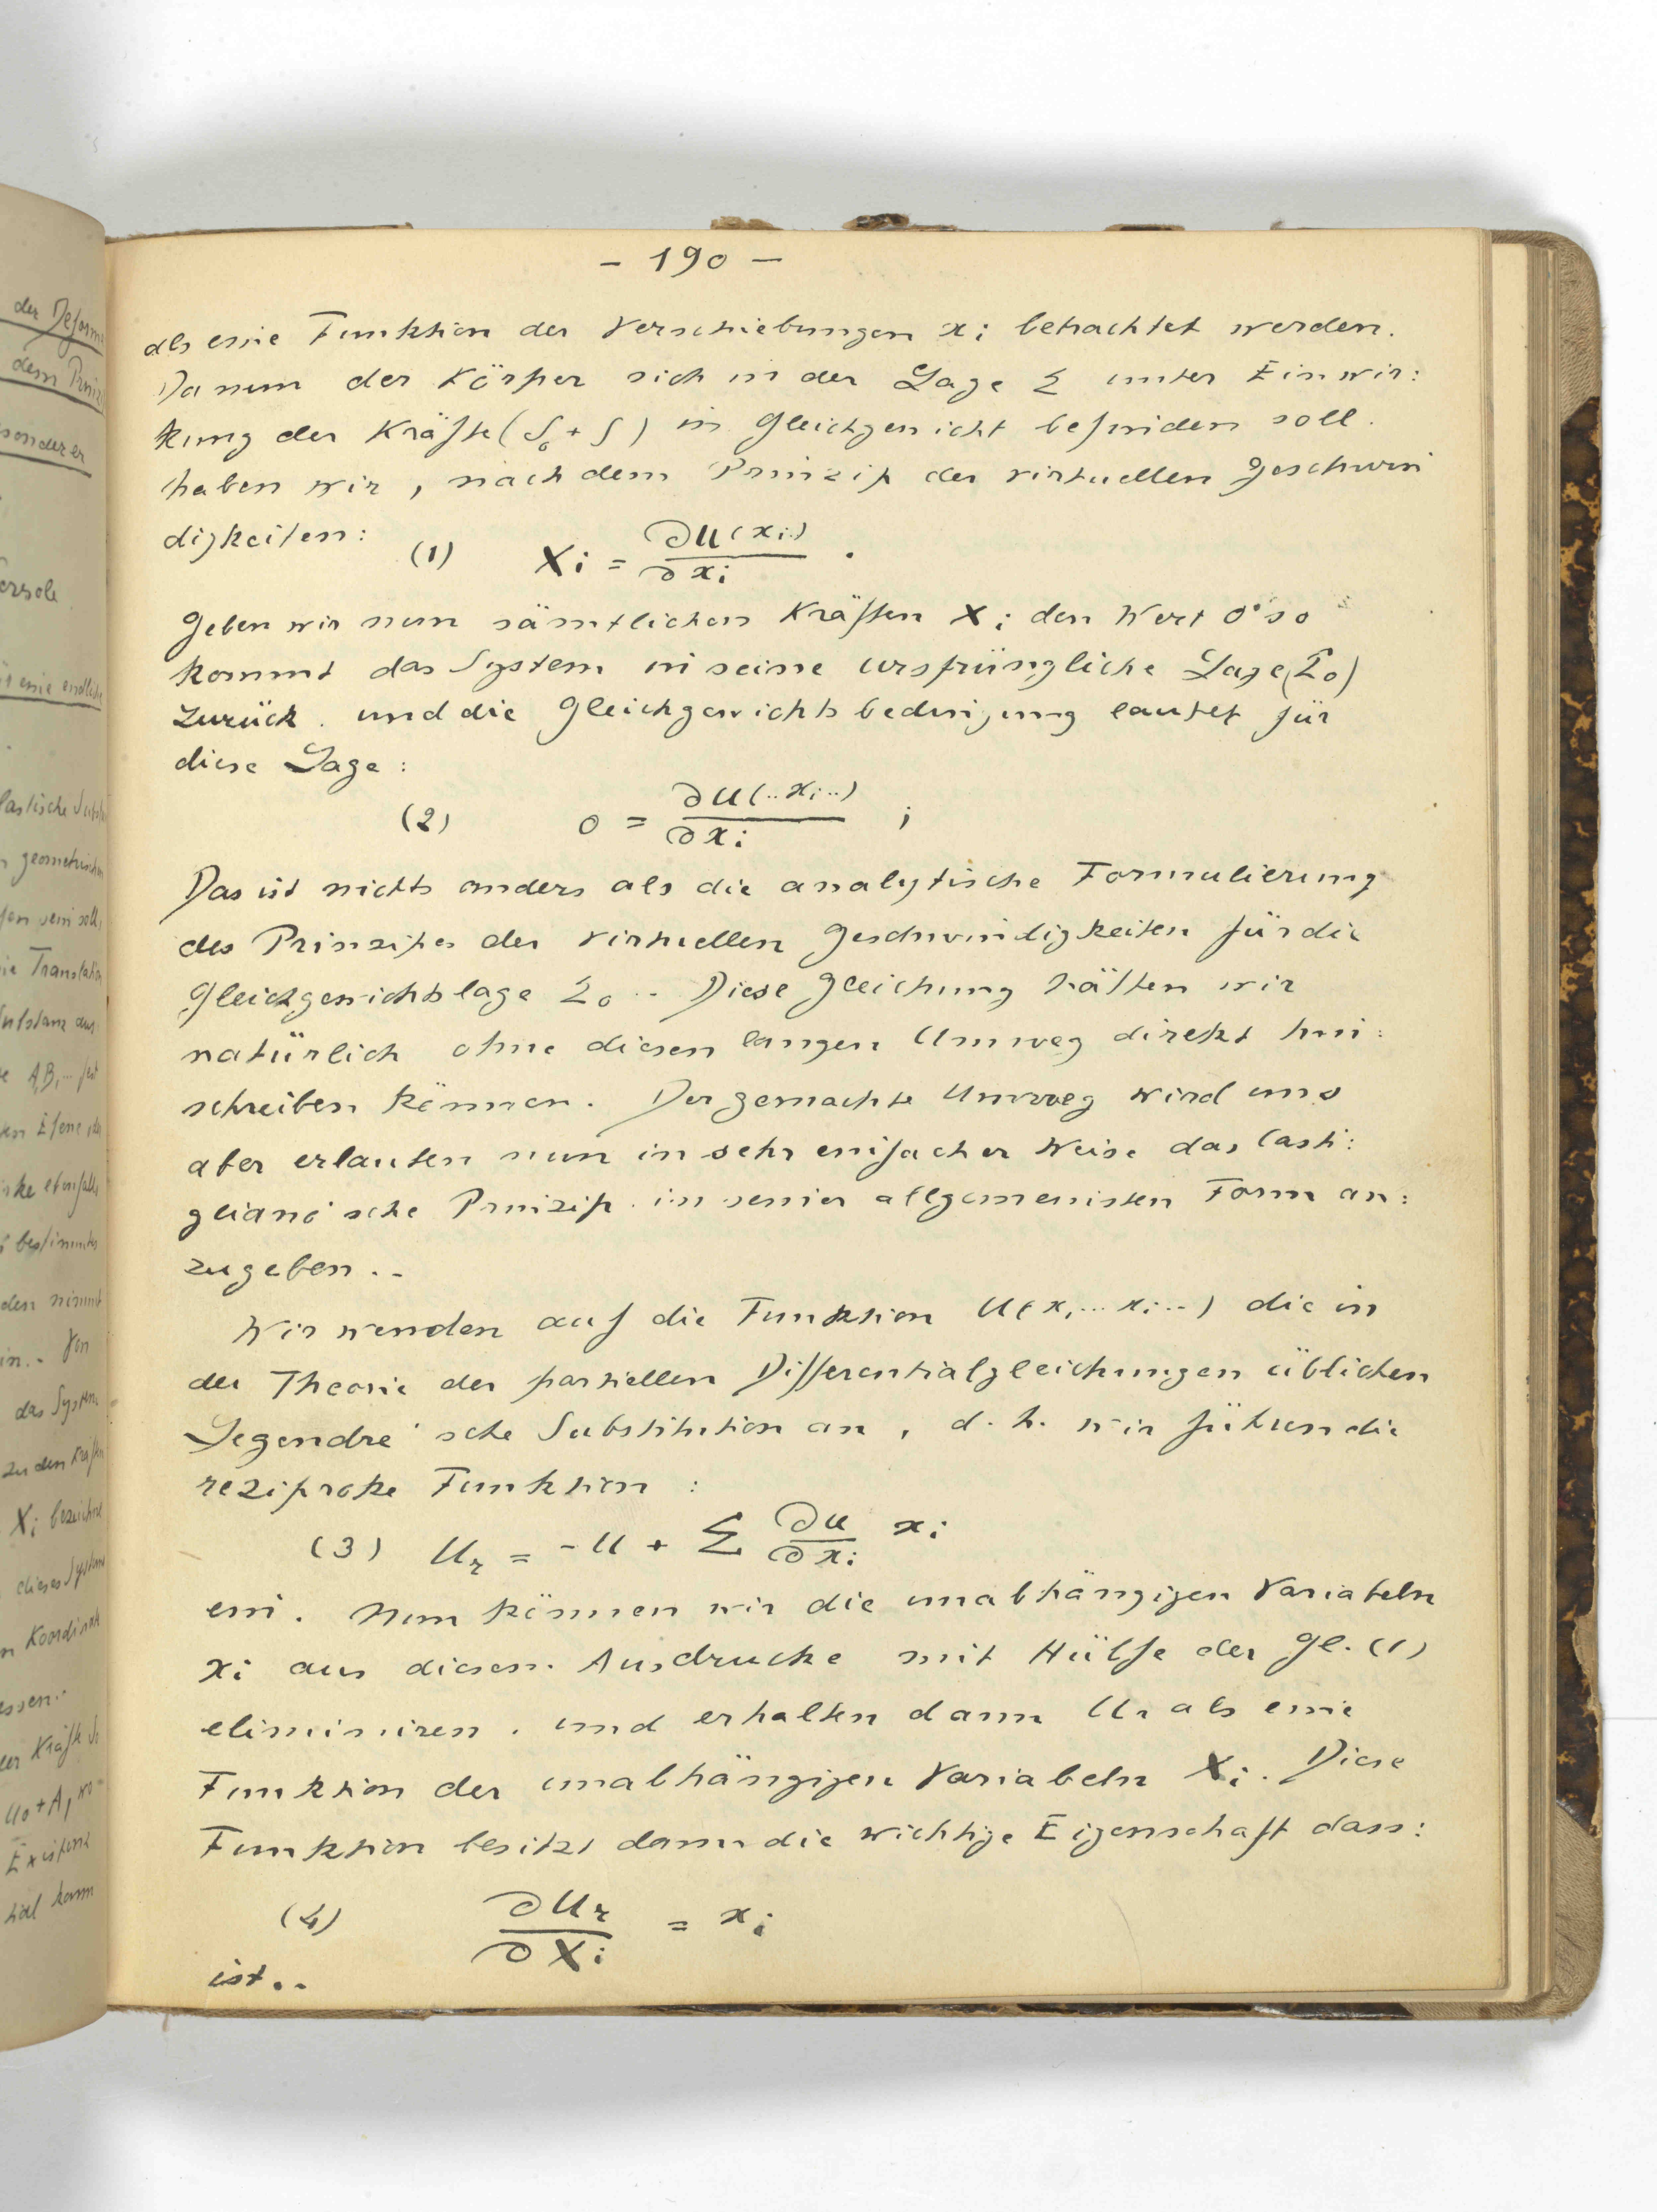 der Deform
dem Prinz
sonderer
ersele
eine endlich
lastische Subst
geometrisch
sein soll,
die Translation
Substanz aus
A,B,... fest
den Ebene, der
ebenfalls
bestimmtes
den nimmt
in.. Von
das System
zu den Kräften
Xi bezeichne
dieses System
n Koordinat
essen..
der Kräfte
U0 + A, wo
Existenz
tial kann
- 190 -
als eine Funktion der Verschiebungen xi betrachtet werden.
Da nun der Körper sich in der Lage Σ unter Einwir:
kung der Kräfte (S0 + S) in Gleichgewicht befinden soll.
haben wir, nach dem Prinzip der virtuellen Geschwin
digkeiten:
(1) Xi = ∂U(xi) / ∂xi .
Geben wir nun sämtlichen Kräften Xi den Wert 0 so
kommt das System in seine ursprüngliche Lage (Σ0)
zurück. und die Gleichgewichtsbedingung lautet für
diese Lage:
(2) 0 = ∂U(..xi..) / ∂xi ;
Das ist nichts anders als die analytische Formulierung
des Prinzipes der virtuellen Geschwindigkeiten für die
Gleichgewichtslage Σ0 .. Diese Gleichung hätten wir
natürlich ohne diesen langen Umweg direkt hin:
schreiben können. Der gemachte Umweg wird uns
aber erlauben nun in sehr einfacher Weise das Casti:
gliano'sche Prinzip in seiner allgemeinsten Form an:
zugeben..
Wir wenden auf die Funktion U(x,... xi..) die in
der Theorie der partiellen Differentialgleichungen üblichen
Legendre'sche Substitution an, d.h. wir führen die
reziproke Funktion:
(3) Ur = -U + Σ ∂U/∂xi xi
ein. Nun können wir die unabhängigen Variabeln
xi aus diesem Ausdrucke mit Hülfe der Gl. (1)
eliminiren. und erhalten dann Ur als eine
Funktion der unabhängigen Variabeln Xi. Diese
Funktion besitzt dann die wichtige Eigenschaft dass:
(4) ∂Ur / ∂Xi = xi
ist..